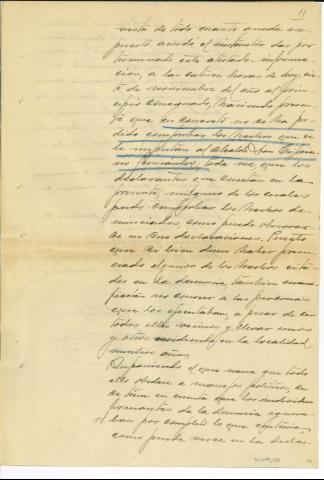 15
vista de todo cuanto queda ex-
puesto acordó el instructor dar por
terminado este atestado informa-
ción, a las catorce horas de hoy, sie-
te de noviembre del año al prin-
cipio consignado, haciendo presen-
te que en concreto no se ha po-
dido comprobar los hechos que se
le imputan al Alcalde Don
no Fernandez, toda vez que los
declarantes que constan en la
presente, ninguno de los cuales
pudo comprobar los hechos de-
nunciados, como puede observar-
se en sus declaraciones. Puesto
que si bien dicen haber presen-
ciado algunos de los hechos cita-
dos en la denuncia, también mani-
fiestan no conocer a las personas
que los ejecutaban, a pesar de ser
todos ellos vecinos y llevar unos
y otros residiendo en la localidad
muchos años.
el que narra que todo
ello obedece a manejos políticos, en
se tiene en cuenta que los individuos
firmantes de la denuncia ignora-
ban por completo lo que
como puede verse en la decla-